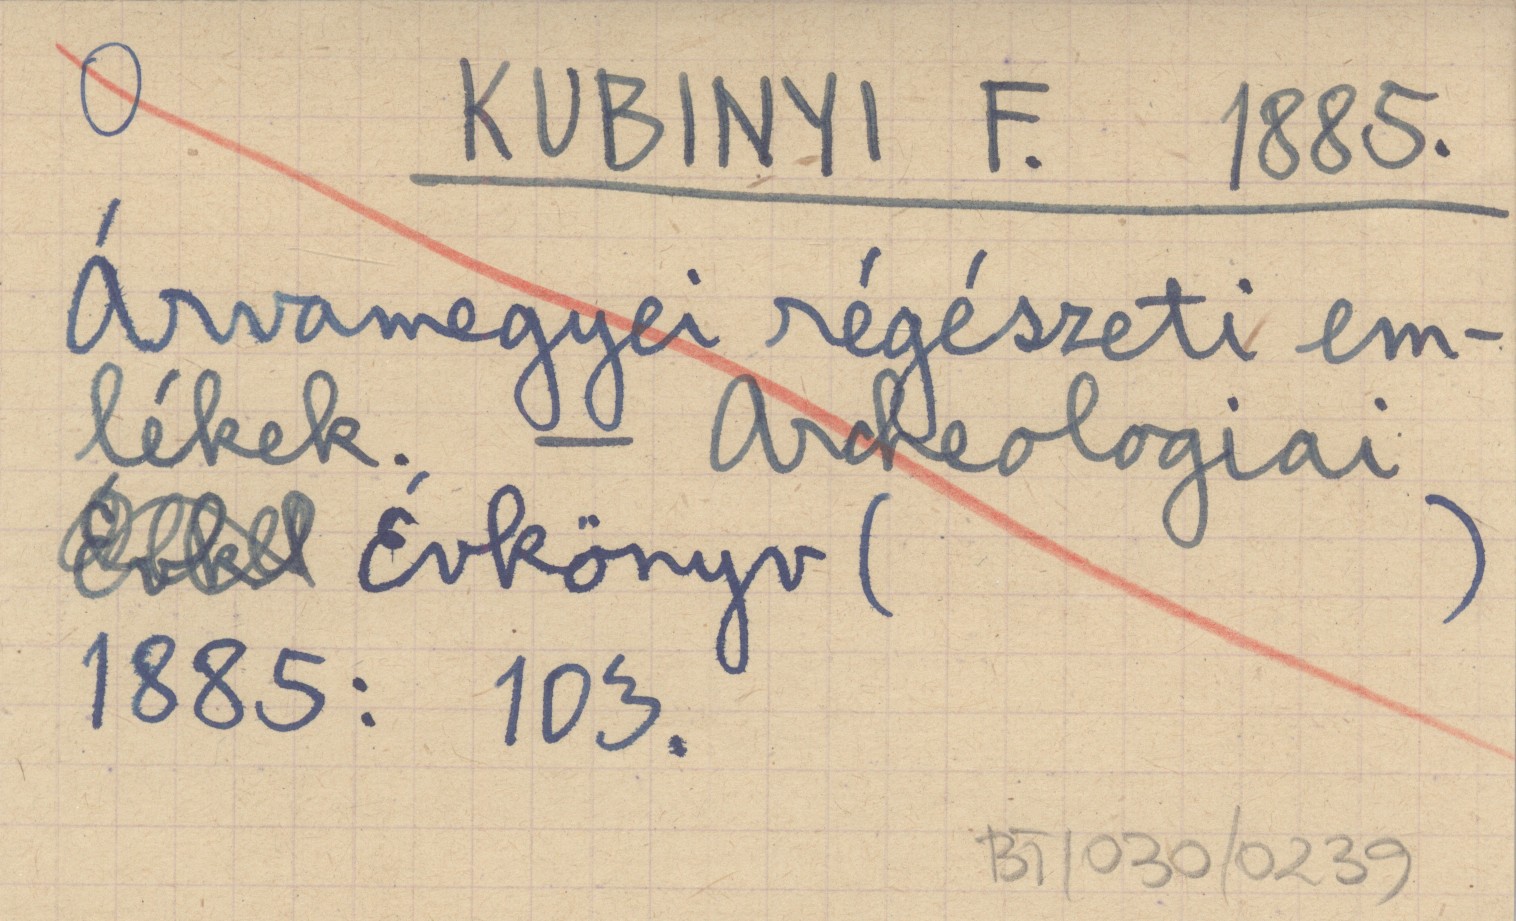 O KUBINYI F. 1885.
Árvamegyei régészeti em-
lékek. — Archeologiai
Évkönyv ( )
1885: 103.
BT/030/0239